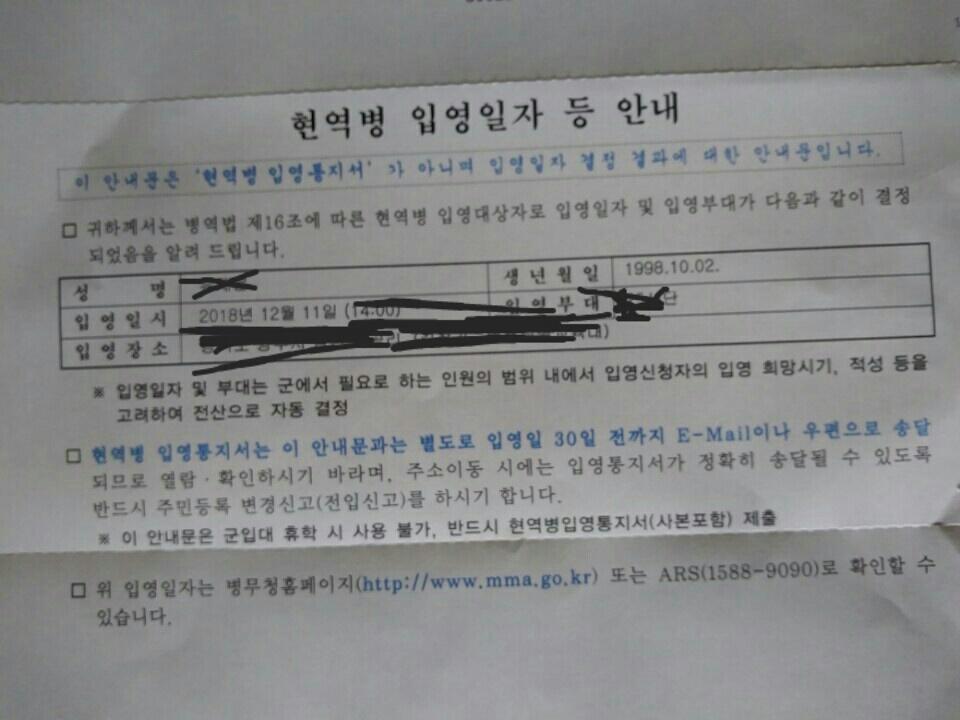 현역병 입영일자 등 안내
이 안내문은 '현역병 입영통지서' 가 아니며 입영일자 결정 결과에 대한 안내문입니다.
□ 귀하께서는 병역법 제16조에 따른 현역병 입영대상자로 입영일자 및 입영부대가 다음과 같이 결정
되었음을 알려 드립니다.
성 명 생년월일 1998.10.02.
입영일시 2018년 12월 11일 (14:00) 입영부대
입영장소
※ 입영일자 및 부대는 군에서 필요로 하는 인원의 범위 내에서 입영신청자의 입영 희망시기, 적성 등을
고려하여 전산으로 자동 결정
□ 현역병 입영통지서는 이 안내문과는 별도로 입영일 30일 전까지 E-Mail이나 우편으로 송달
되므로 열람·확인하시기 바라며, 주소이동 시에는 입영통지서가 정확히 송달될 수 있도록
반드시 주민등록 변경신고(전입신고)를 하시기 합니다.
※ 이 안내문은 군입대 휴학 시 사용 불가, 반드시 현역병입영통지서(사본포함) 제출
□ 위 입영일자는 병무청홈페이지(http://www.mma.go.kr) 또는 ARS(1588-9090)로 확인할 수
있습니다.